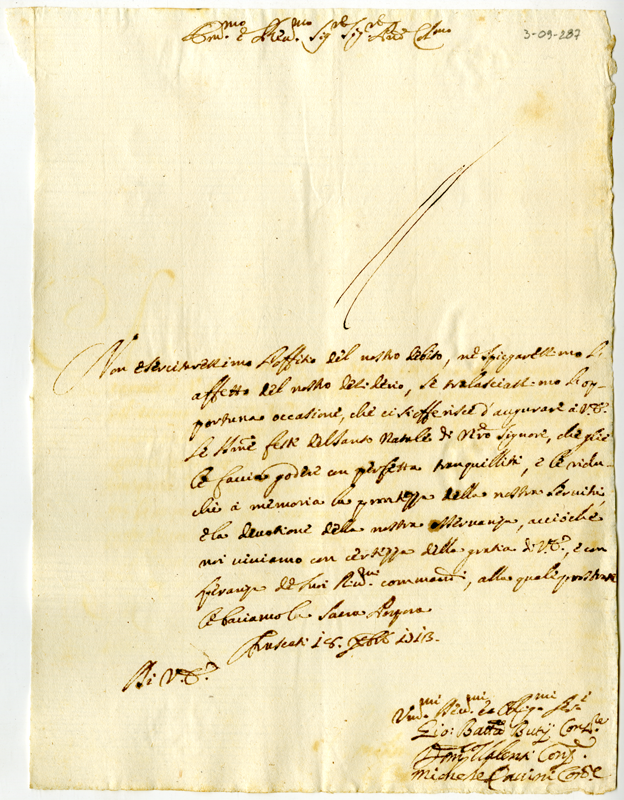 Em.mo e Rev.mo Sig.re Sig.re Pad.ne Col.mo
3-09-287
Non esercitaressimo l'offitio del nostro debito, ne spiegaressimo l'
affetto del nostro desiderio, se tralasciassimo l'op-
portuna occasione, che ci s'offerisce d'augurare à V.E.
le S.me feste del Santo Natale di N'ro Signore, che gliè
le faccia godere con perfetta tranquillità, e le ridu-
chi à memoria la prontezza della nostra servitù,
e la devotione della nostra osservanza, acciòche
noi viviamo con certezza della gratia di V.E., e con
speranza de suoi commandi, alla quale prostrati
le baciamo la Sacra Porpora
Frascati 18. Xbre 1713.
Di V.E.
Um.mi Dev.mi et Oblig.mi
Gio: Batta Butij
Conf.
Michele